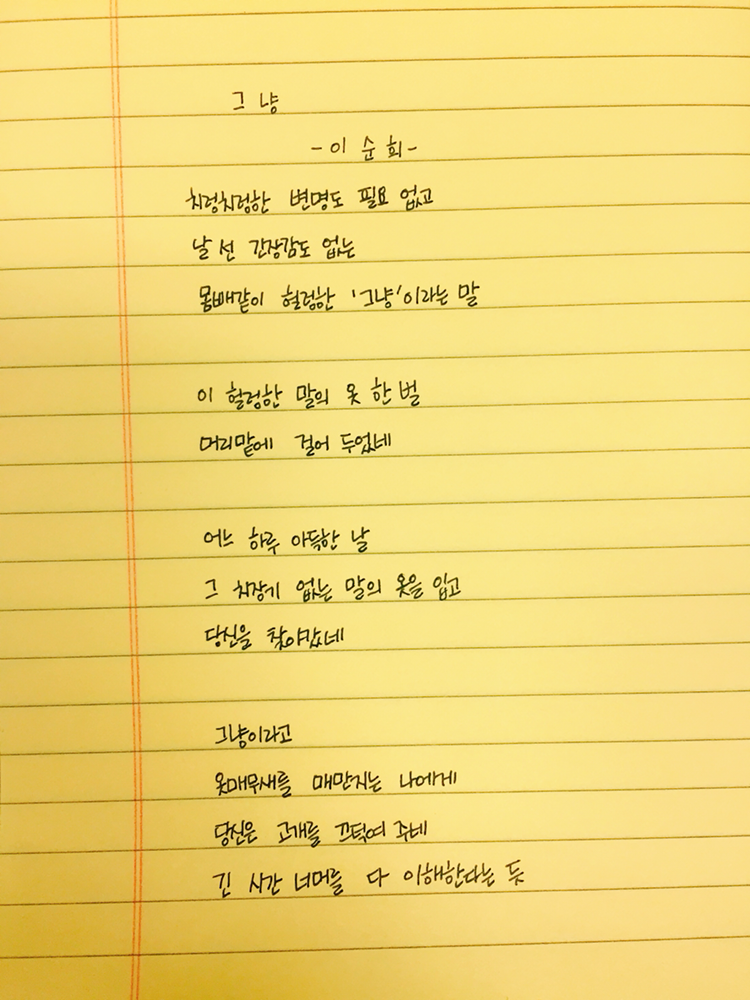 그냥
-이순희-
치렁치렁한 변명도 필요 없고
날 선 긴장감도 없는
몸빼같이 헐렁한 '그냥'이라는 말
이 헐렁한 말의 옷 한 벌
머리맡에 걸어 두었네
어느 하루 아득한 날
그 치장기 없는 말의 옷을 입고
당신을 찾아갔네
그냥이라고
옷매무새를 매만지는 나에게
당신은 고개를 끄덕여 주네
긴 시간 너머를 다 이해한다는 듯